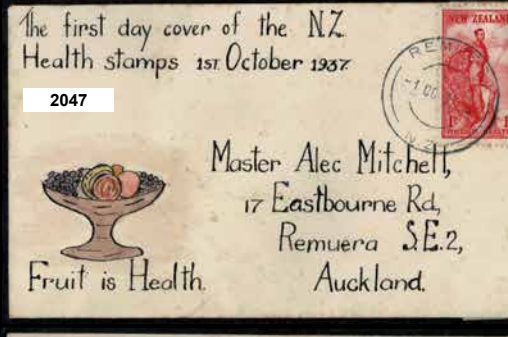 The first day cover of the N.Z.
Health stamps 1ST. October 1937.
2047
NEW ZEALAND
Master Alec Mitchell,
17 Eastbourne Rd,
Remuera S.E.2,
Auckland.
Fruit is Health.